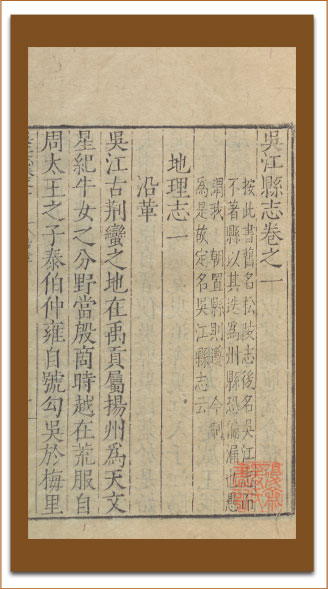 吳江縣志卷之一
按此書舊名松陵志後名吳江志而
不著縣以其迭為州縣恐偏漏也愚
謂我 朝置縣則遵 今制
為是故定名吳江縣志云
地理志一
沿革
吳江古荆蠻之地在禹貢屬揚州為天文
星紀牛女之分野當殷商時越在荒服自
周太王之子泰伯仲雍自號勾吳於梅里